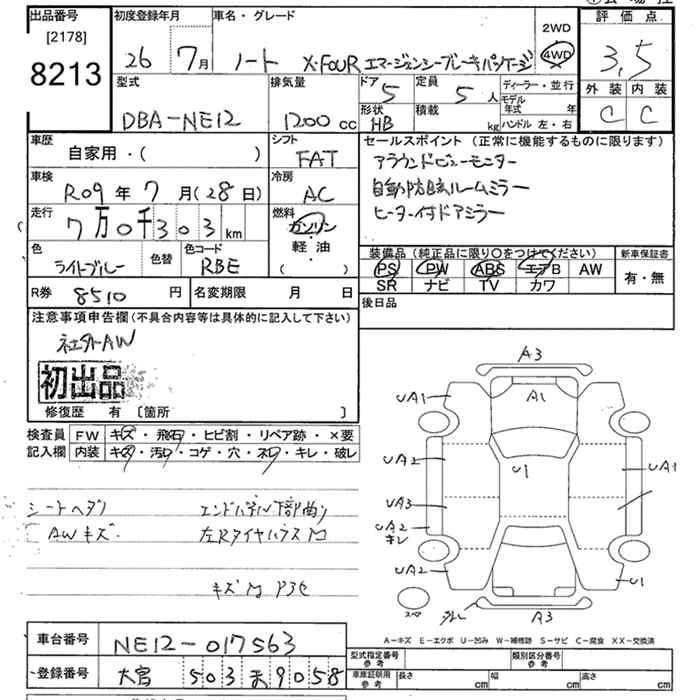 出品番号 初度登録年月 車名・グレード 評価点
[2178]
8213
26 7月 ノート X・FOUR エマージェンシーブレーキパッケージ 2WD 4WD 3,5
型式 排気量 ドア 5 定員 5人 ディーラー・並行 外装 内装
モデル年式 年
DBA-NE12 1200cc 形状 HB 積載 kg ハンドル 左・右 C C
車歴 自家用・( ) シフト FAT セールスポイント (正常に機能するものに限ります)
アラウンドビューモニター
車検 R09年7月(28日) 冷房 AC 自動防眩ルームミラー
走行 7万0千303km 燃料 ガソリン ヒーター付ドアミラー
軽・油
( )
色 ライトブルー 色替 色コード RBE 装備品 (純正品に限り○をつけてください) 新車保証書
PS PW ABS エアB AW 有・無
SR ナビ TV カワ
R券 8510円 名変期限 月 日 後日品
注意事項申告欄(不具合内容等は具体的に記入して下さい)
社外AW
初出品
修復歴 有 [箇所 ]
検査員 FW キズ・飛石・ヒビ割・リペア跡・×要
記入欄 内装 キズ・汚レ・コゲ・穴・ネレ・キレ・破レ
シートヘタリ エンドパネル下部曲り
AWキズ 左Rタイヤハウス凹
A3
UA1 A1
UA2 U1 UA1
UA3
UA2
キレ
UA2 U1
スペア A3
A-キズ E-エクボ U-凹み W-補修跡 S-サビ C-腐食 XX-交換済
車台番号 NE12-017563 型式指定番号 参考 類別区分番号 参考
登録番号 大宮 503 ま 9058 車庫証明用 参考 長さ cm 幅 cm 高さ cm